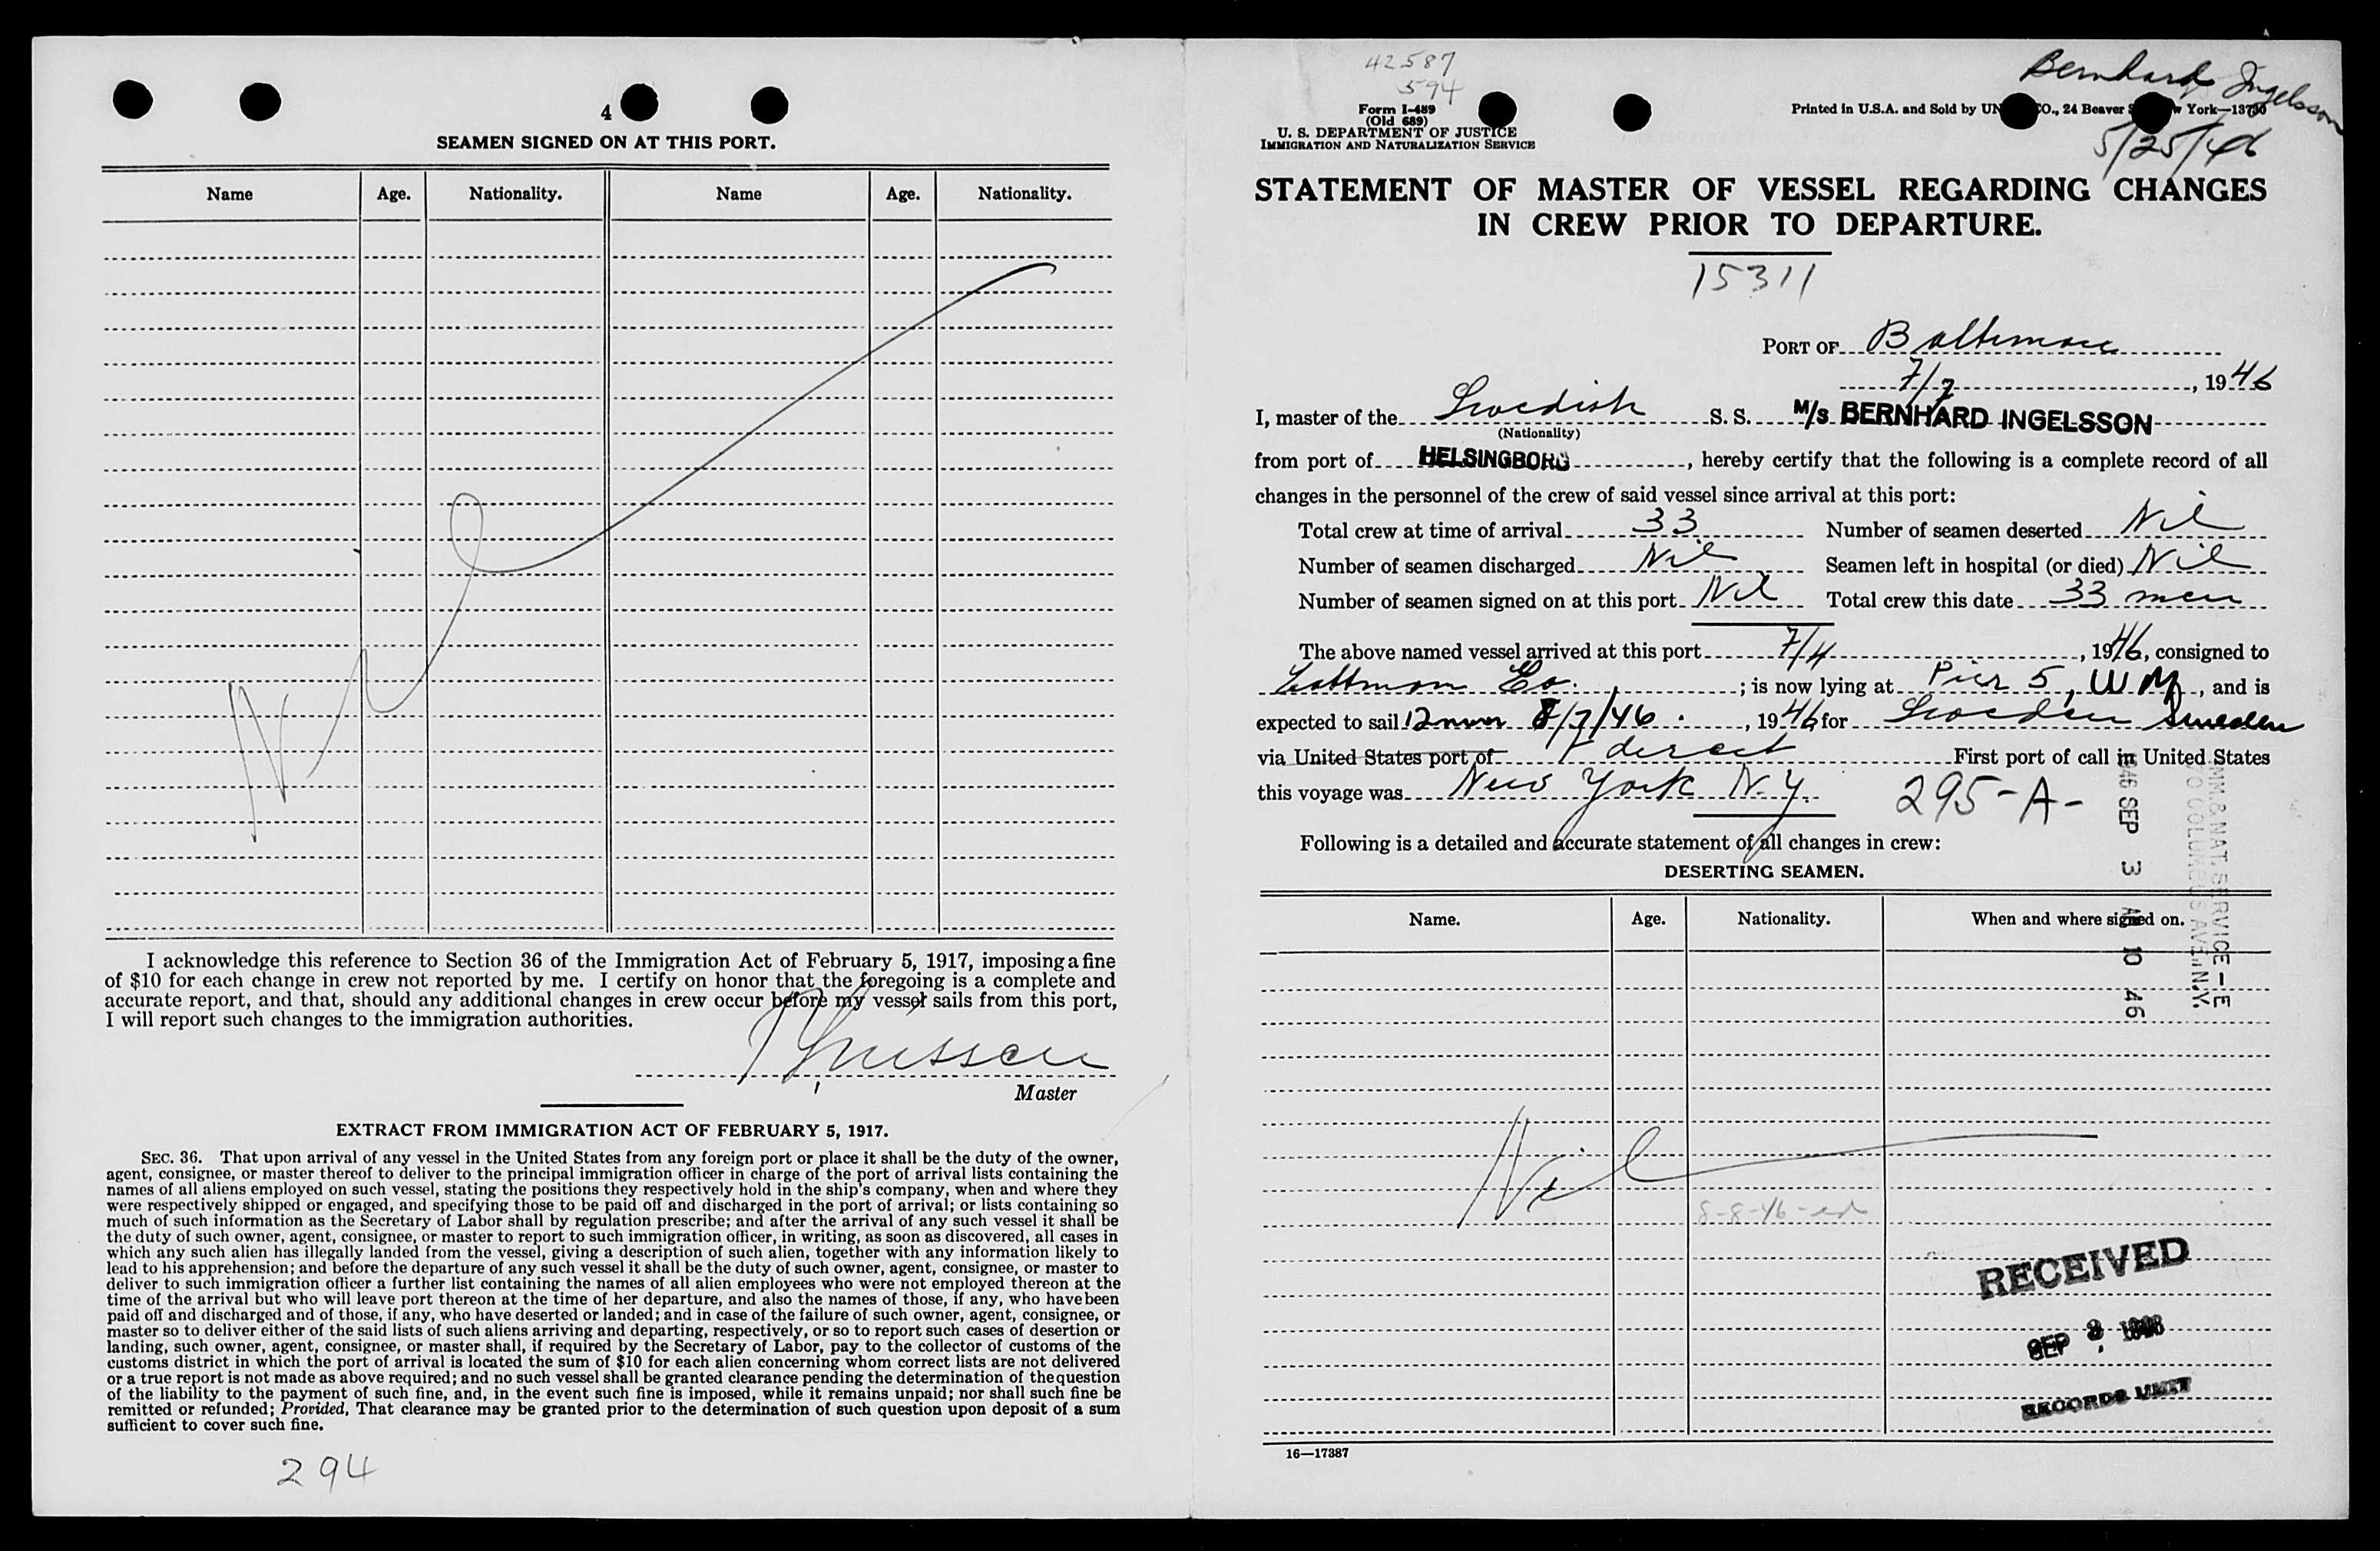 4
SEAMEN SIGNED ON AT THIS PORT.
Name Age. Nationality. Name Age. Nationality.
Nil
I acknowledge this reference to Section 36 of the Immigration Act of February 5, 1917, imposing a fine
of $10 for each change in crew not reported by me. I certify on honor that the foregoing is a complete and
accurate report, and that, should any additional changes in crew occur before my vessel sails from this port,
I will report such changes to the immigration authorities.
Master
EXTRACT FROM IMMIGRATION ACT OF FEBRUARY 5, 1917.
SEC. 36. That upon arrival of any vessel in the United States from any foreign port or place it shall be the duty of the owner,
agent, consignee, or master thereof to deliver to the principal immigration officer in charge of the port of arrival lists containing the
names of all aliens employed on such vessel, stating the positions they respectively hold in the ship's company, when and where they
were respectively shipped or engaged, and specifying those to be paid off and discharged in the port of arrival; or lists containing so
much of such information as the Secretary of Labor shall by regulation prescribe; and after the arrival of any such vessel it shall be
the duty of such owner, agent, consignee, or master to report to such immigration officer, in writing, as soon as discovered, all cases in
which any such alien has illegally landed from the vessel, giving a description of such alien, together with any information likely to
lead to his apprehension; and before the departure of any such vessel it shall be the duty of such owner, agent, consignee, or master to
deliver to such immigration officer a further list containing the names of all alien employees who were not employed thereon at the
time of the arrival but who will leave port thereon at the time of her departure, and also the names of those, if any, who have been
paid off and discharged and of those, if any, who have deserted or landed; and in case of the failure of such owner, agent, consignee, or
master so to deliver either of the said lists of such aliens arriving and departing, respectively, or so to report such cases of desertion or
landing, such owner, agent, consignee, or master shall, if required by the Secretary of Labor, pay to the collector of customs of the
customs district in which the port of arrival is located the sum of $10 for each alien concerning whom correct lists are not delivered
or a true report is not made as above required; and no such vessel shall be granted clearance pending the determination of the question
of the liability to the payment of such fine, and, in the event such fine is imposed, while it remains unpaid; nor shall such fine be
remitted or refunded; Provided, That clearance may be granted prior to the determination of such question upon deposit of a sum
sufficient to cover such fine.
294
42587
594
Form I-489
(Old 689)
U. S. DEPARTMENT OF JUSTICE
IMMIGRATION AND NATURALIZATION SERVICE
Bernhard Ingelsson
Printed in U.S.A. and Sold by UN CO., 24 Beaver York—13730
5/25/46
STATEMENT OF MASTER OF VESSEL REGARDING CHANGES
IN CREW PRIOR TO DEPARTURE.
15311
PORT OF Baltimore
7/7, 1946
I, master of the Swedish S. S. M/s BERNHARD INGELSSON
(Nationality)
from port of HELSINGBORG, hereby certify that the following is a complete record of all
changes in the personnel of the crew of said vessel since arrival at this port:
Total crew at time of arrival 33 Number of seamen deserted Nil
Number of seamen discharged Nil Seamen left in hospital (or died) Nil
Number of seamen signed on at this port Nil Total crew this date 33 men
The above named vessel arrived at this port 7/4, 1946, consigned to
Co.; is now lying at Pier 5, W M, and is
expected to sail 12 noon 8/7/46, 1946 for Sweden Sweden
via United States port of direct First port of call in United States
this voyage was New York N.Y. 295-A-
Following is a detailed and accurate statement of all changes in crew:
DESERTING SEAMEN.
Name. Age. Nationality. When and where signed on.
Nil
8-8-46-
946 SEP 3 AM 10 46
IMM & NAT SERVICE - E
70 COLUMBUS AVE. N.Y.
RECEIVED
SEP 3 1946
RECORDS UNIT
16—17387